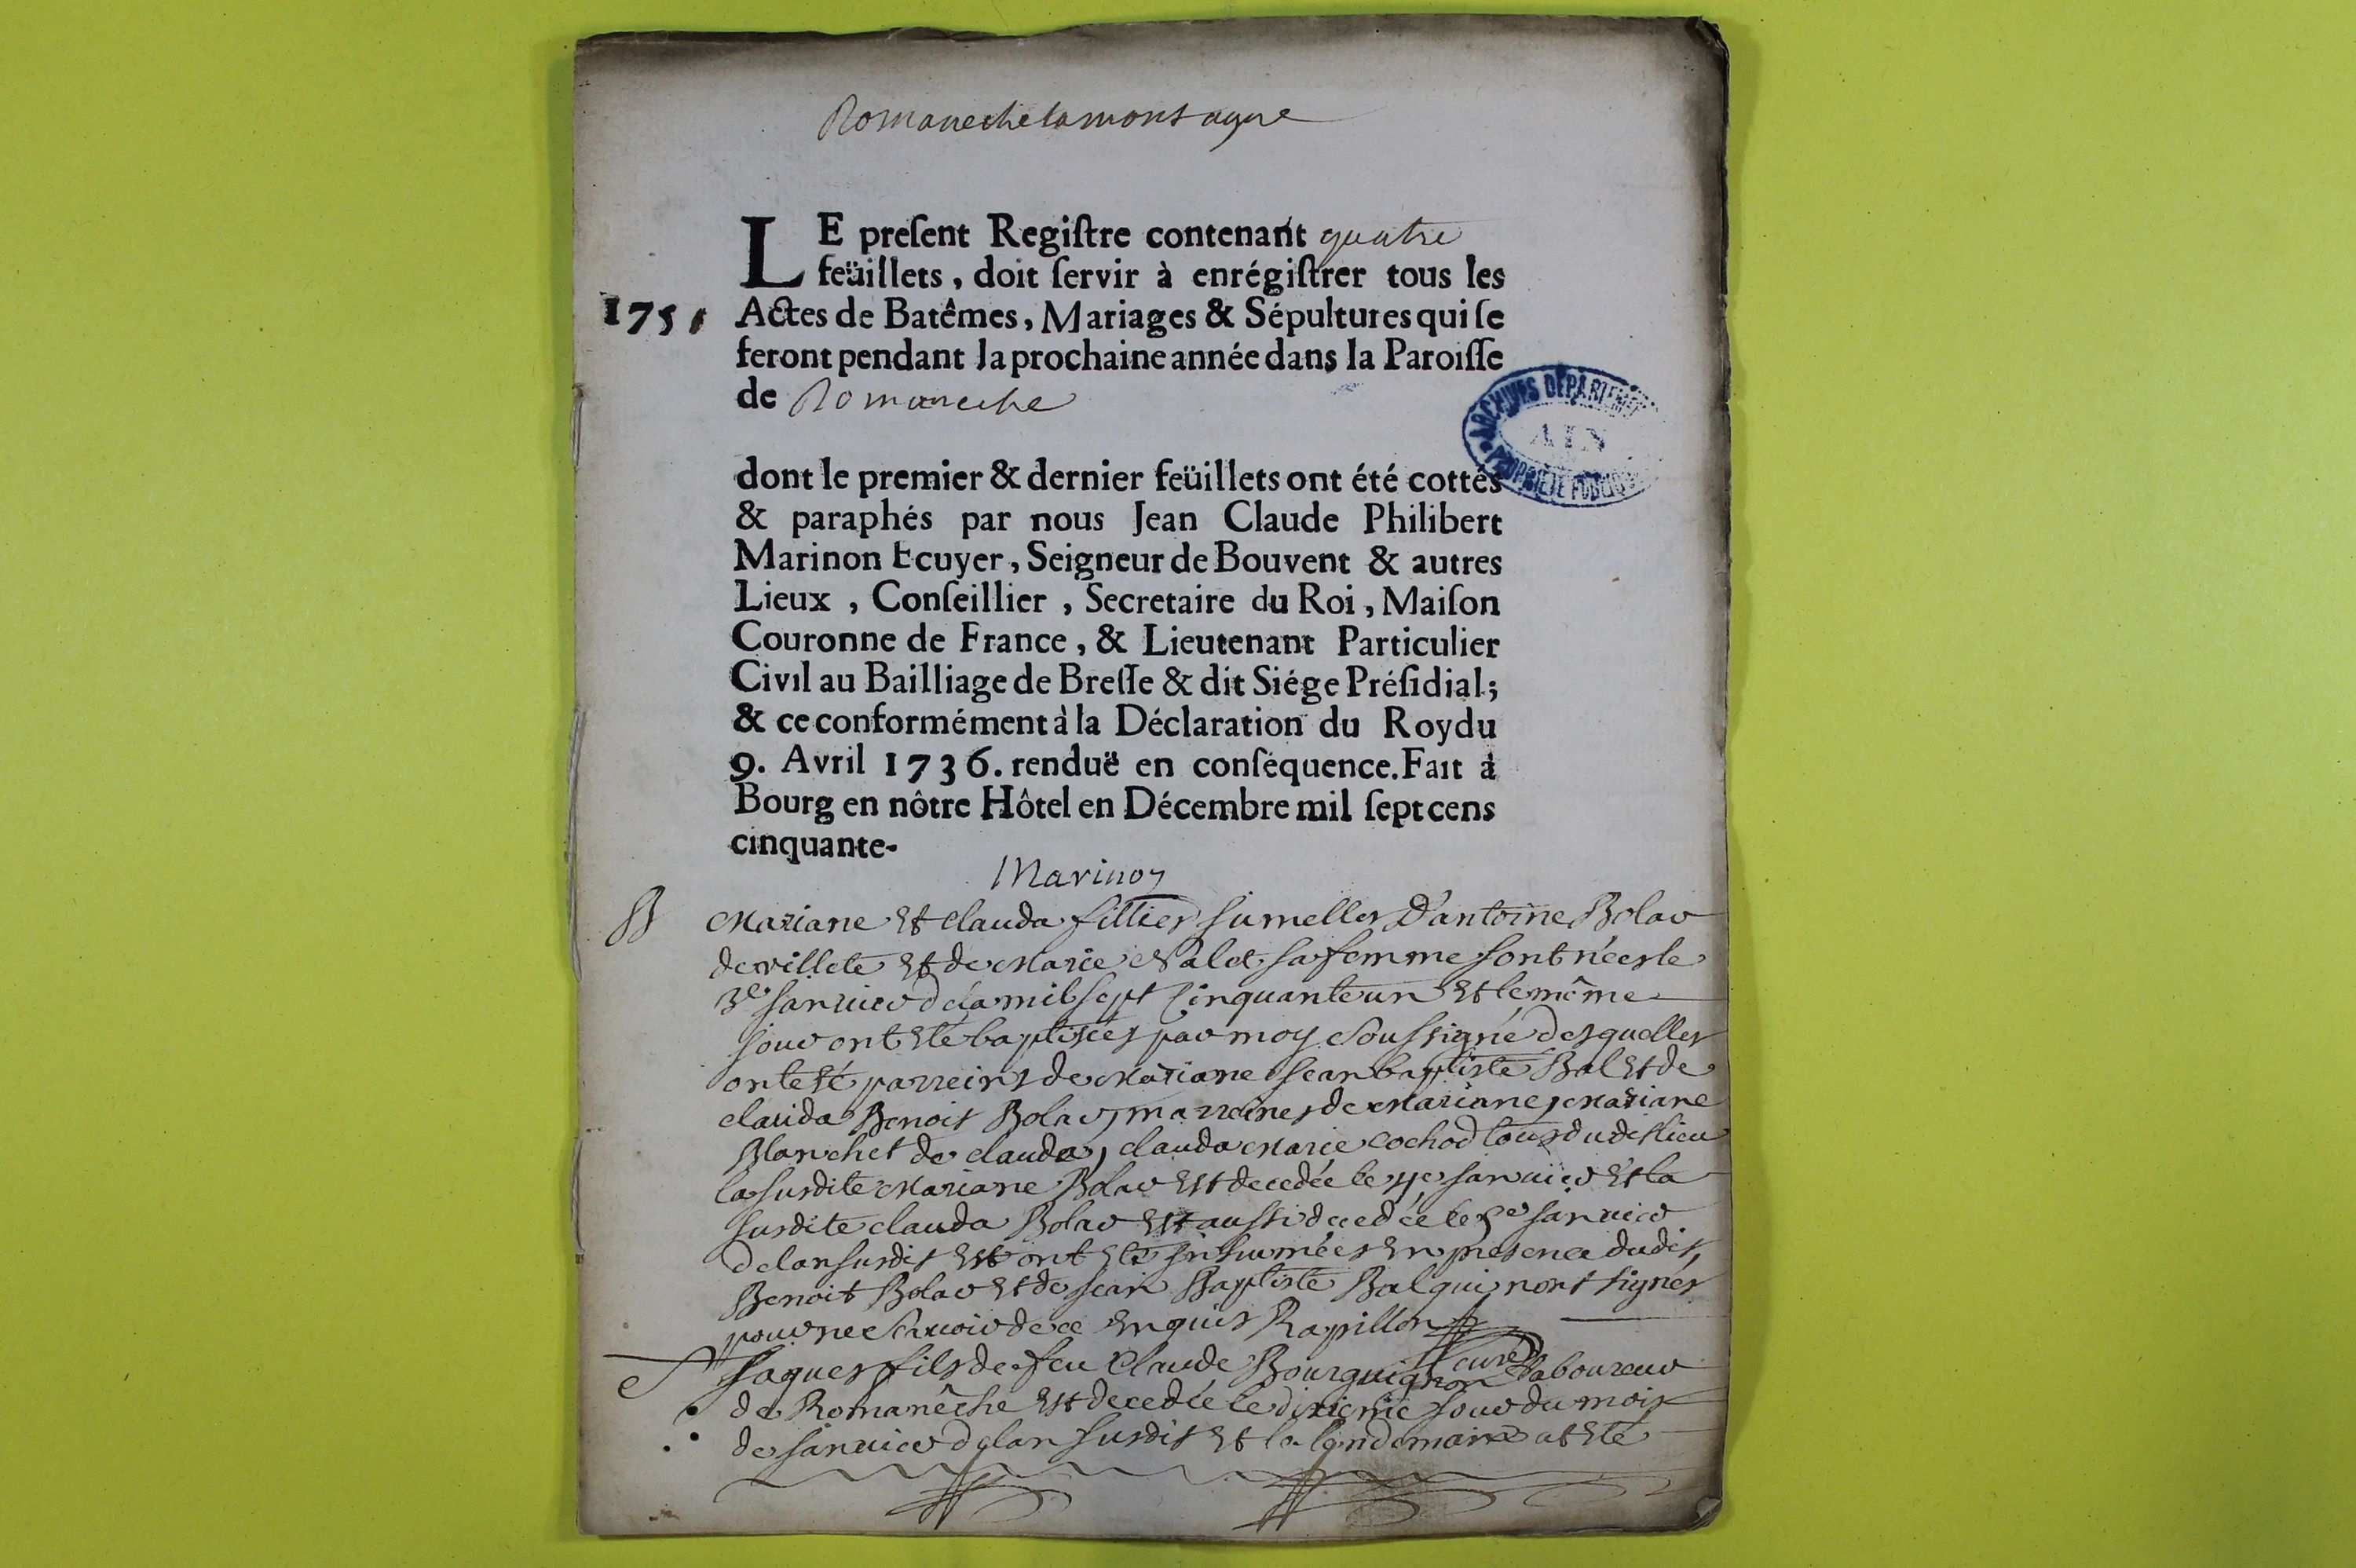 Romanechelamontagne
LE preſent Regiſtre contenant quatre
feüillets, doit ſervir à enrégiſtrer tous les
1751
Actes de Batêmes, Mariages & Sépultures qui ſe
feront pendant la prochaine année dans la Paroiſſe
de Romaneche
ARCHIVES DEPARTEMENT
AIN
PROPRIETE PUBLIQUE
dont le premier & dernier feüillets ont été cottés
& paraphés par nous Jean Claude Philibert
Marinon Ecuyer, Seigneur de Bouvent & autres
Lieux, Conſeillier, Secretaire du Roi, Maiſon
Couronne de France, & Lieutenant Particulier
Civil au Bailliage de Breſſe & dit Siége Préſidial;
& ce conformément à la Déclaration du Roy du
9. Avril 1736. renduë en conſéquence. Fait à
Bourg en nôtre Hôtel en Décembre mil ſept cens
cinquante-
Marinon
B
Mariane et Clauda filles jumelles D'antoine Bolar
de villete et de Marie sa femme sont nées le
3e janvier de la mil sept Cinquante un et le même
jour ont eté baptisées par moy Soussigné desquelles
ont eté parreins de Mariane jean baptiste Bal et de
clauda Benoit Bolar, marreines de Mariane, Mariane
Blanchet de clauda, clauda Marie cochod tous dudit lieu
la susdite Mariane Bolar est decedée le janvier et la
susdite clauda Bolar est aussi decedée le 5e janvier
de lan susdit et ont eté inhumées en presence dudit
Benoit Bolar et de jean Baptiste Bal qui n'ont signés
pour ne Sçavoir de ce enquis Rapillon
curé
S jaques fils de feu Claude Bourguignon laboureur
de Romanêche est decedée le dixieme jour du mois
de janvier de lan susdit et le lendemain at eté